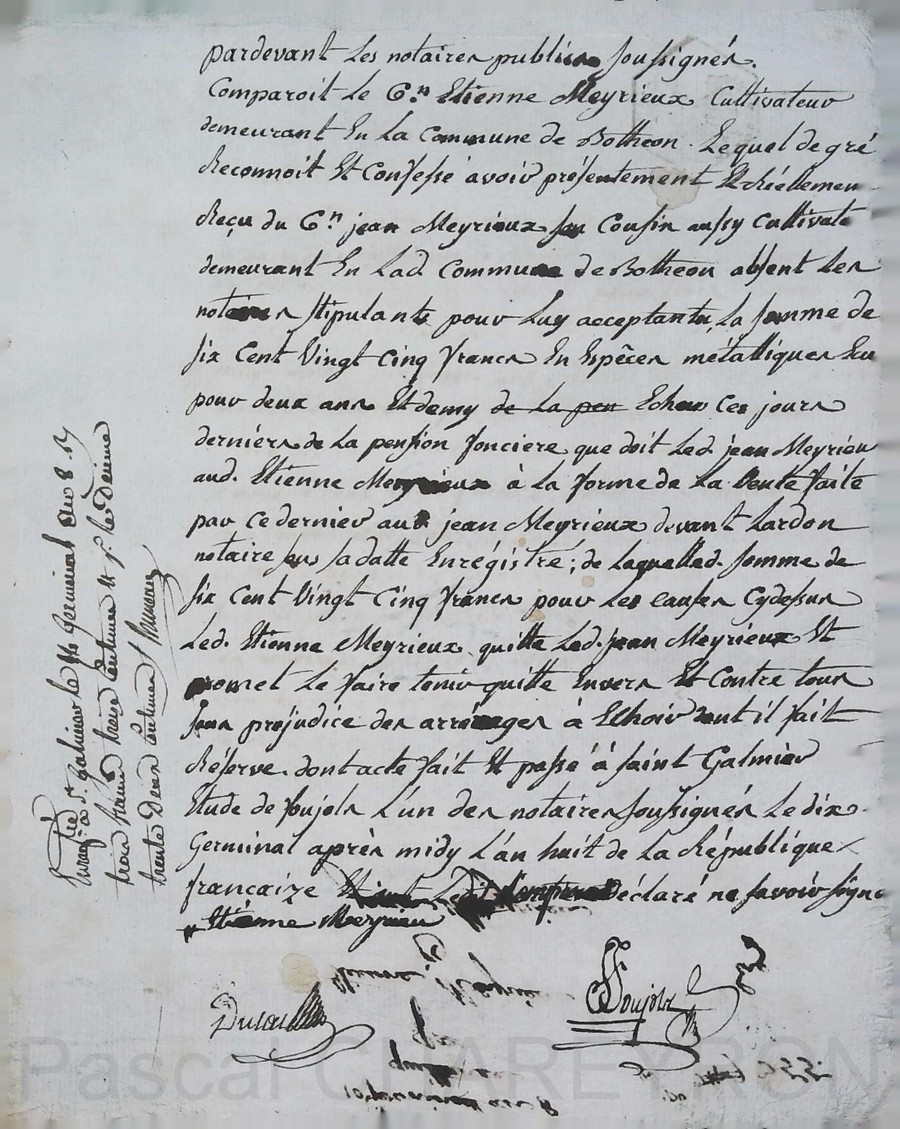 pardevant Les notaires publics soussignés.
Comparoit Le C.en Etienne Meyrieux Cultivateur
demeurant En La Commune de Botheon. Lequel de gré
Reconnoit Et Confesse avoir présentement Et Réellemen
Reçu du C.en jean Meyrieux son Cousin aussy Cultivate
demeurant En Lad Commune de Botheon absent Les
notaires stipulants pour Luy acceptants, La somme de
six Cent Vingt Cinq francs En Espèces métalliques
pour deux ans Et demy de la pen Echeu Ces jours
derniers de La pension fonciere que doit Led. jean Meyrieu
aud. Etienne Meyrieux à La forme de La Vente faite
par ce dernier au jean Meyrieux devant Lardon
notaire sus sa datte Enrégistré; de Laquelled. somme de
six Cent Vingt Cinq francs pour Les causes Cydessus
Led. Etienne Meyrieux quitte Led. jean Meyrieux Et
promet Le faire tenir quitte Envers Et Contre tous
sans préjudice des arrérages à Echoir dont il fait
Réserve. dont acte fait Et passé à saint Galmier
Etude de soujols L'un des notaires soussignés Le dix
Germinal après midy L'an huit de La République
francaize Déclaré ne savoir signe
Etienne Meyrieu
Soujols
Enreg.tré à S.t Galmier le 14 Germinal an 8
trois francs treize Centimes
trente Deux Centimes
Pascal CHAREYRON